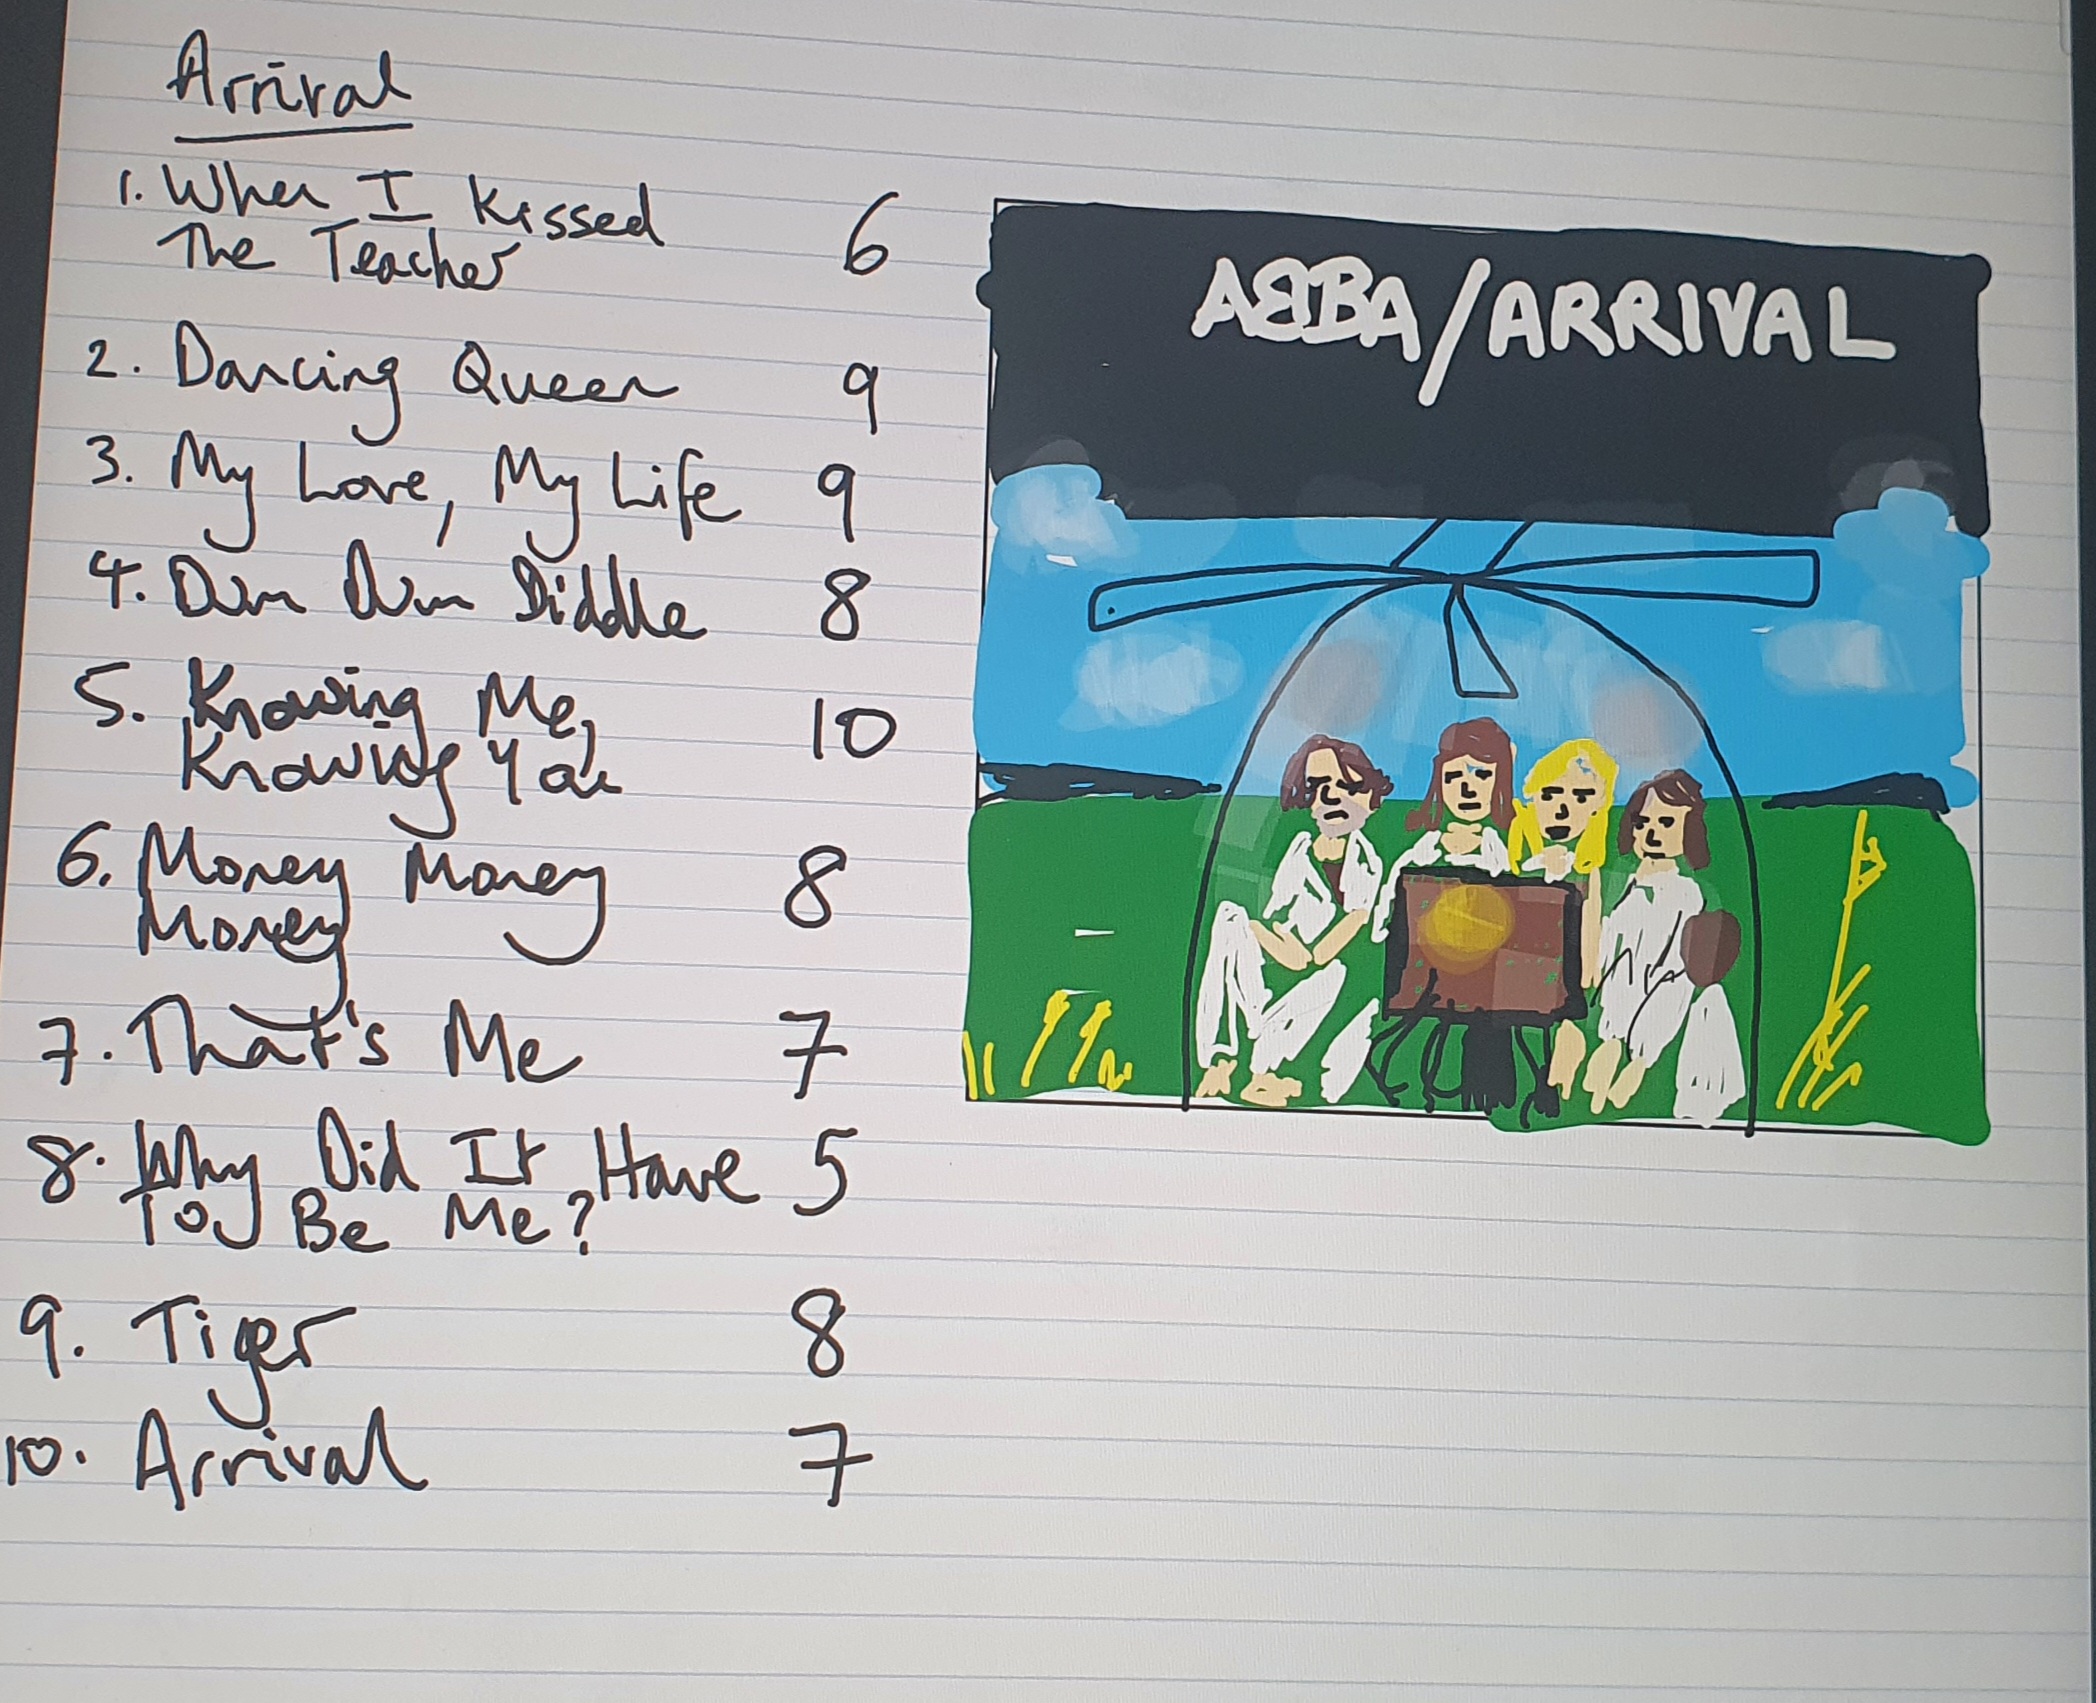 Arrival
1. When I Kissed
The Teacher 6
2. Dancing Queen 9
3. My Love, My Life 9
4. Dum Dum Diddle 8
5. Knowing Me,
Knowing You 10
6. Money Money
Money 8
7. That's Me 7
8. Why Did It Have
To Be Me? 5
9. Tiger 8
10. Arrival 7
ABBA/ARRIVAL